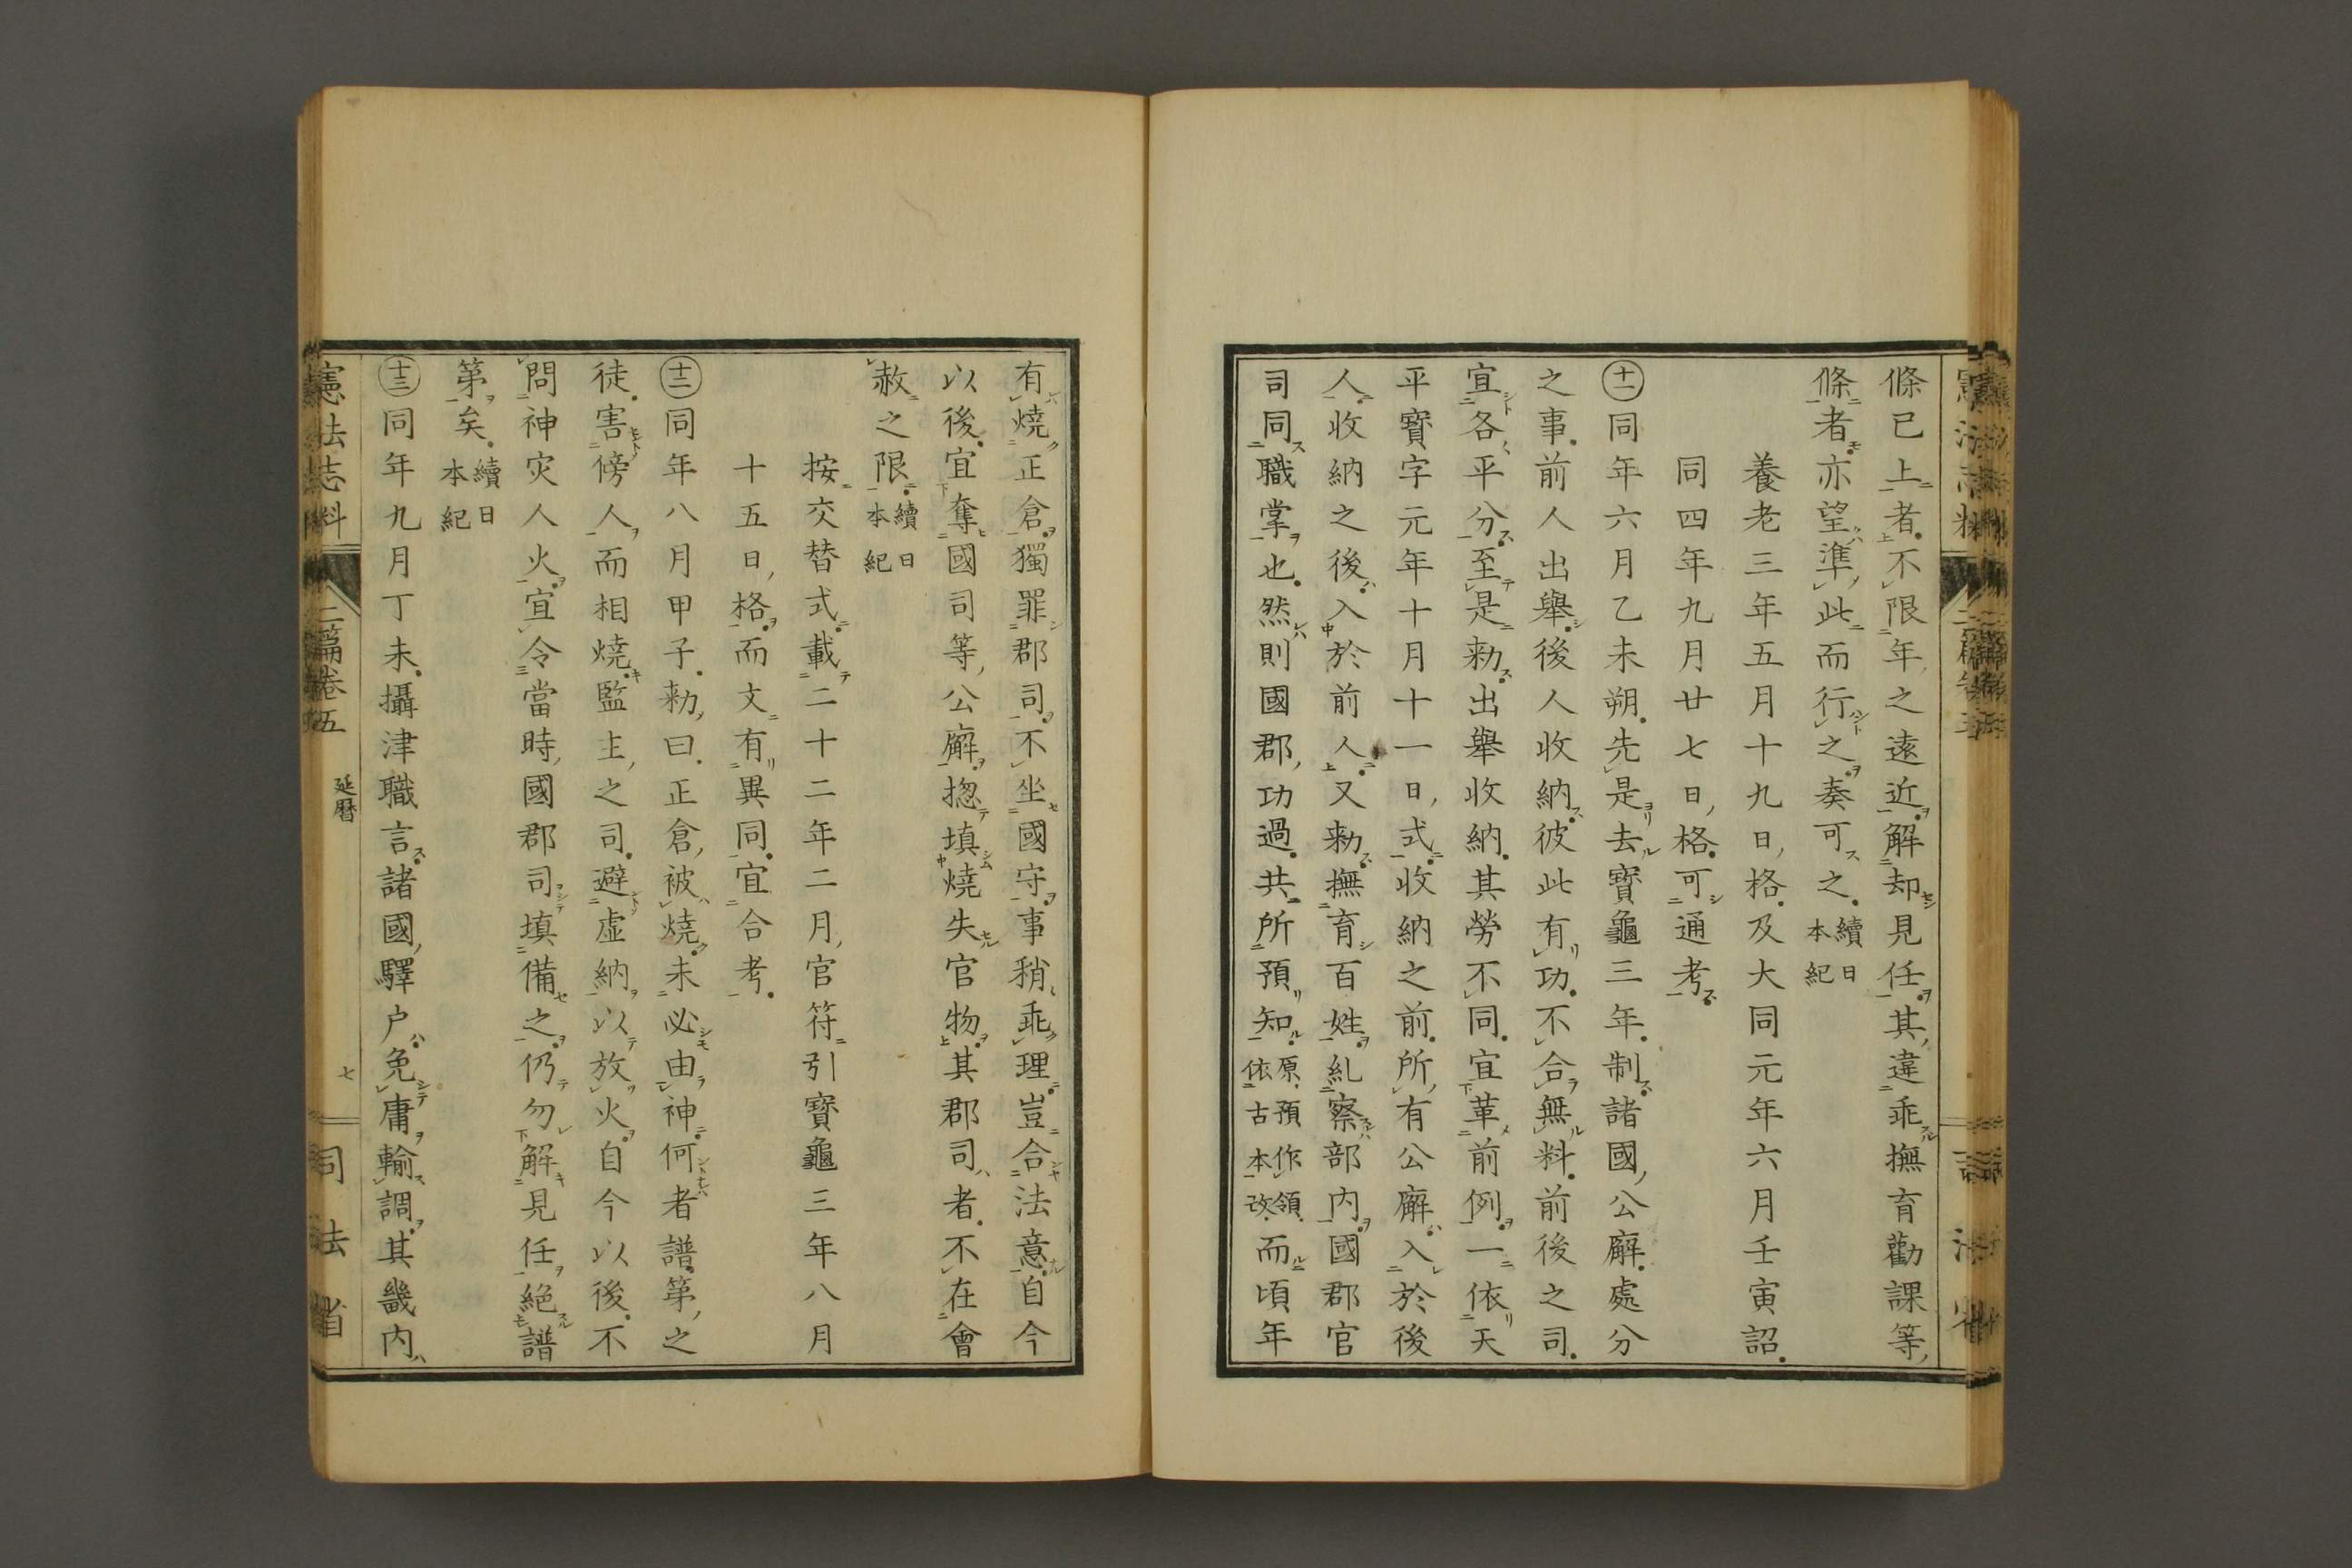 條已上者不限年之遠近解却見任其違乖撫育勸課等
條者亦望準此而行之奏可之續日本紀
養老三年五月十九日格及大同元年六月壬寅詔
同四年九月廿七日格可通考
十一同年六月乙未朔先是去寶龜三年制諸國公廨處分
之事前人出舉後人收納彼此有功不合無料前後之司
宜各平分至是勅出舉收納其勞不同宜革前例一依天
平寶字元年十月十一日式收納之前所有公廨入於後
人收納之後入於前人又勅撫育百姓糺察部內國郡官
司同職掌也然則國郡功過共所預知原預作領依古本改而頃年
有燒正倉獨罪郡司不坐國守事稍乖理豈合法意自今
以後宜奪國司等公廨揔填燒失官物其郡司者不在會
赦之限續日本紀
按交替式載二十二年二月官符引寶龜三年八月
十五日格而文有異同宜合考
十二同年八月甲子勅曰正倉被燒未必由神何者譜第之
徒害傍人而相燒監主之司避虛納以放火自今以後不
問神灾人火宜令當時國郡司填備之仍勿解見任絕譜
第矣續日本紀
十三同年九月丁未攝津職言諸國驛户免庸輸調其畿內
憲法志料 二篇卷五 延曆 七 司法省